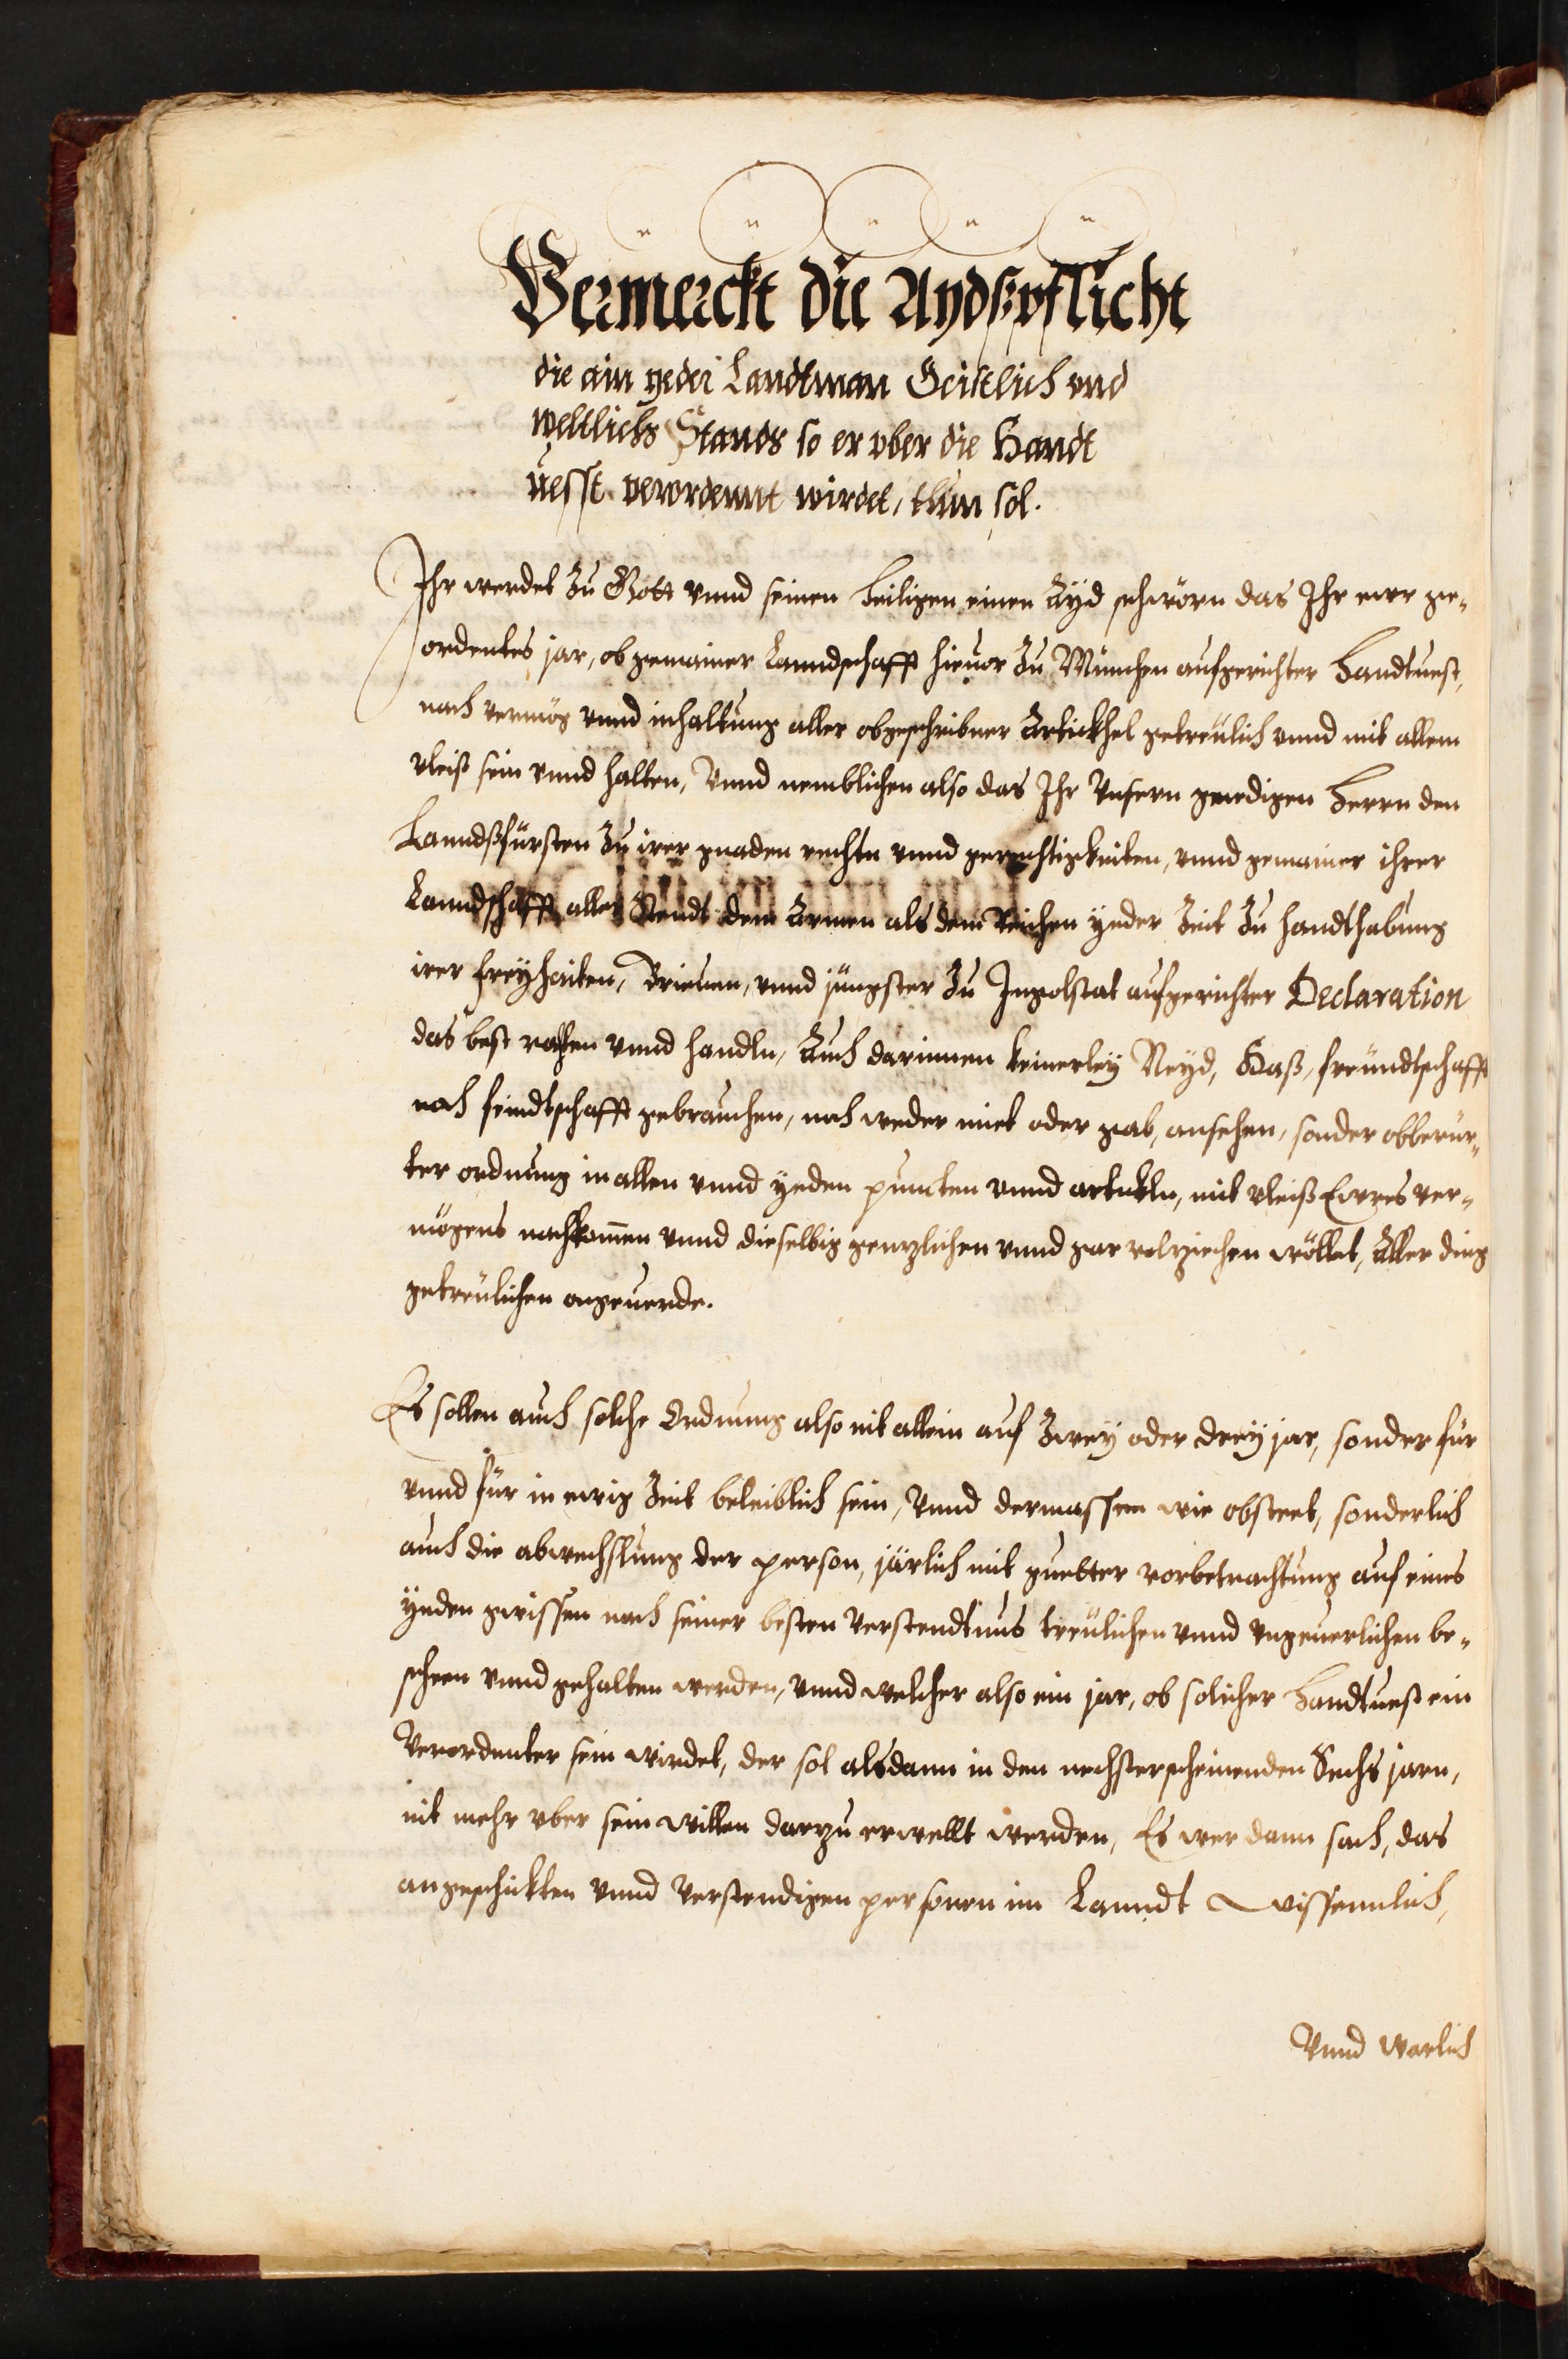 Vermerckt die Aydspflicht
die ain yeder Landtman Geistlich vnd
weltlichs Stands so er vber die Handt
uesst verordennt wirdet, thun sol.
Ihr werdet Zu Gott vnnd seinen heiligen einen Ayd schwörn das Ihr ewr ge„
ordentes jar, ob gemainer Lanndschafft hieuor Zu München aufgerichter Handtuest,
nach vermög vnnd inhaltung aller obgeschribner Artickhel getreülich vnnd mit allem
vleiß sein vnnd halten, Vnnd nemblichen also das Ihr Vnsern gnedigen Herrn den
Lanndßfürsten Zu irer gnaden rechtn vnnd gerechtigkeiten, vnnd gemainer ihrer
Lanndschafft aller Stendt dem Armen als dem Reichen yeder Zeit Zu handthabung
irer freyhaiten, Brieuen, vnnd jüngster Zu Ingolstat aufgerichter Declaration
das best rathen vnnd handln, Auch darinnen keinerley Neyd, Haß, freündtschafft
noch feindtschafft gebrauchen, noch weder miet oder gab, ansehen, sonder obberür„
ter ordnung in allen vnnd yeden puncten vnnd artickln, mit vleiß Ewres ver„
mögens nachkomen vnnd dieselbig genzlichen vnnd gar volziechen wöllet, Aller ding
getreülichen ongeuerde.
Es sollen auch solche Ordnung also nit allein auf Zwey oder drey jar, sonder für
vnnd für in ewig Zeit beleiblich sein, Vnnd dermassen wie obsteet, sonderlich
auch die abwechslung der person, järlich mit guetter vorbetrachtung auf eines
yeden gwissen nach seiner besten Verstendtnus treülichen vnnd vngeuerlichen be„
scheen vnnd gehalten werden, vnnd welcher also ein jar, ob solicher Handtuest ein
Verordenter sein wirdet, der sol alsdann in den nechsterscheinenden Sechs jarn,
nit mehr vber sein willen darzu erwellt werden, Es wer dann sach, das
an geschickten vnnd Verstendigen personen im Lanndt wissennlich,
Vnnd warlich